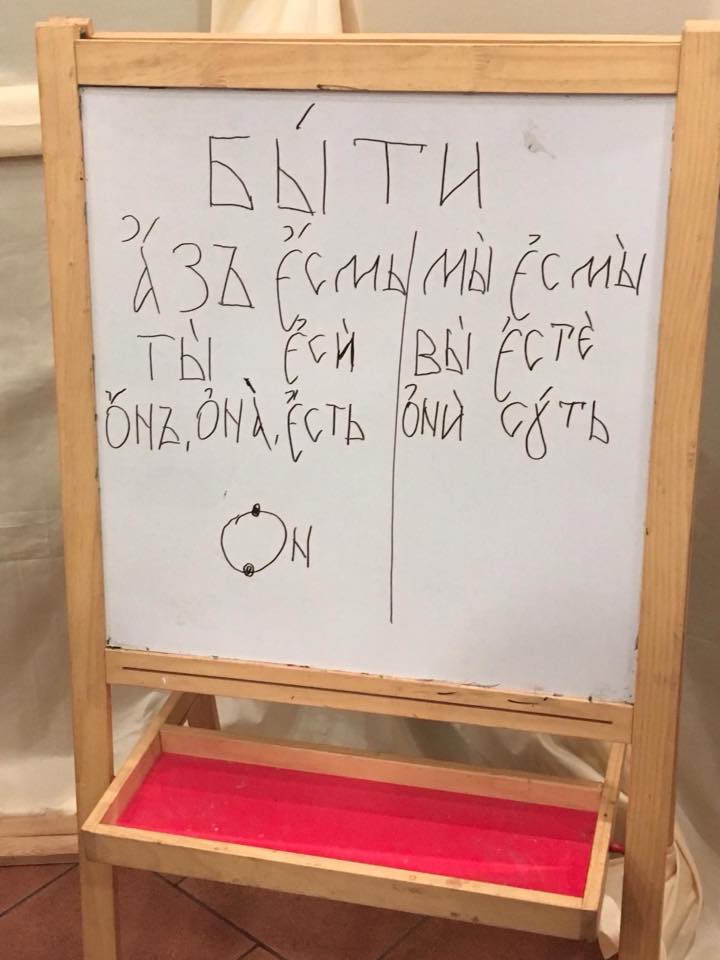 БЫ́ТИ
А҆́ЗЪ Е҆́СМЬ МЫ̀ Е҆СМЫ̀
ТЫ̀ Е҆СЍ ВЫ̀ Е҆СТЀ
О҆́НЪ, О҆НА̀, Е҆́СТЬ О҆НЍ СꙊ́ТЬ
ОN